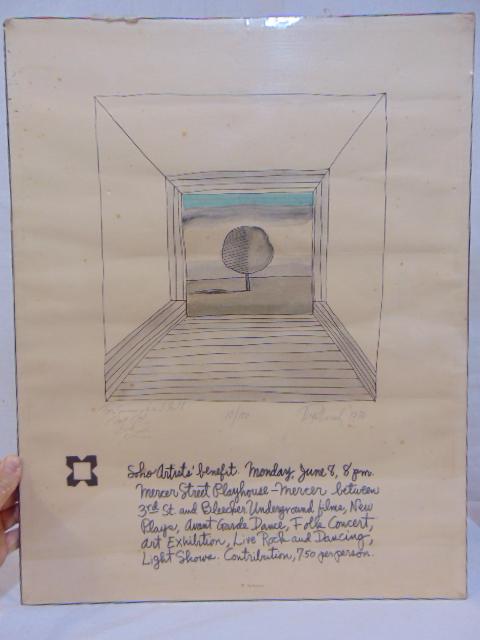 10/100
1970
Soho Artists' benefit. Monday, June 8, 8 pm.
Mercer Street Playhouse - Mercer between
3rd St. and Bleecker Underground films, New
Plays, Avant Garde Dance, Folk Concert,
Art Exhibition, Live Rock and Dancing,
Light Shows. Contribution, 7.50 per person.